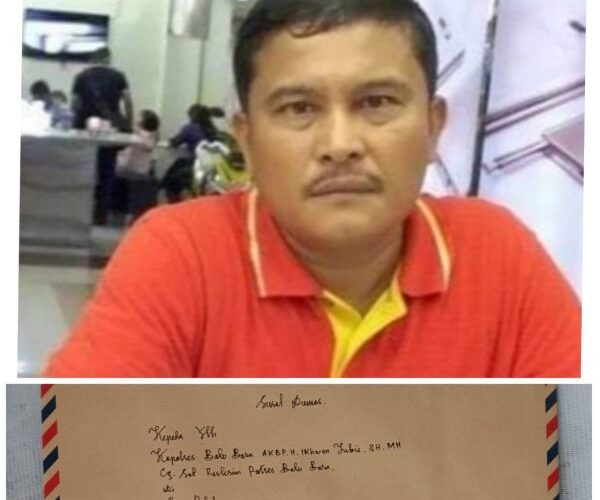 Surat Dumas.
Kepada Yth
Kapolres Batu Bara AKBP. H. IKhwan Lubis. SH. MH
Cq. Sat Reskrim Polres Batu Bara.
di